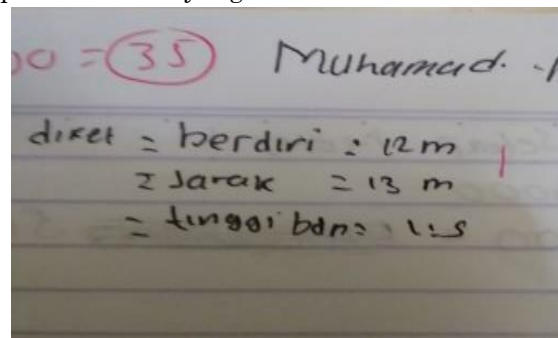 00 = 35 Muhamad.
diket = berdiri : 12 m
= Jarak = 13 m
= tinggi bdn = 1.5